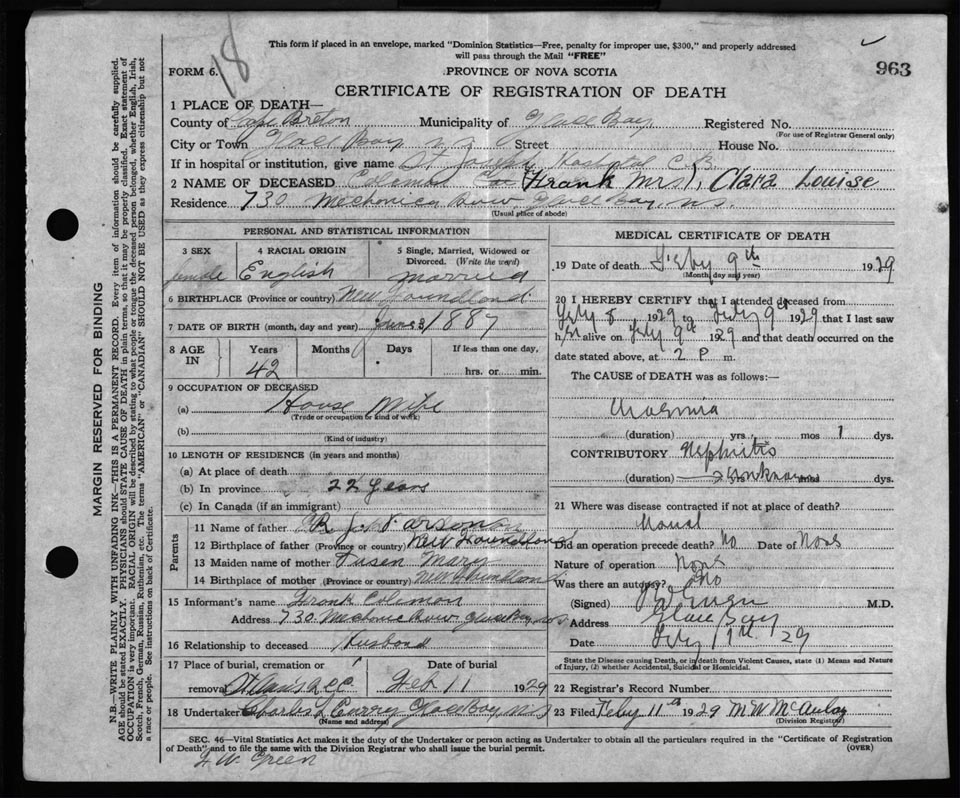 This form if placed in an envelope, marked "Dominion Statistics—Free, penalty for improper use, $300," and properly addressed
will pass through the Mail "FREE"
18
963
FORM 6.
PROVINCE OF NOVA SCOTIA
CERTIFICATE OF REGISTRATION OF DEATH
MARGIN RESERVED FOR BINDING
N.B.—WRITE PLAINLY WITH UNFADING INK—THIS IS A PERMANENT RECORD. Every item of information should be carefully supplied.
AGE should be stated EXACTLY. PHYSICIANS should STATE CAUSE OF DEATH in plain terms, so that it may be properly classified. Exact statement of
OCCUPATION is very important. RACIAL ORIGIN will be described by stating to what people or tongue the deceased person belonged, whether English, Irish,
Scotch, French, German, Russian, Ruthenian, etc. The terms "AMERICAN" or "CANADIAN" SHOULD NOT BE USED as they express citizenship but not
a race or people. See instructions on back of Certificate.
1 PLACE OF DEATH—
County of Cape Breton Municipality of Glace Bay Registered No.
(For use of Registrar General only)
City or Town Glace Bay N S Street House No.
If in hospital or institution, give name St. Joseph Hospital C.B
2 NAME OF DECEASED Frank Mrs), Clara Louise
Residence 730 Mechanics Row Glace Bay, N.S.
(Usual place of abode)
PERSONAL AND STATISTICAL INFORMATION
3 SEX 4 RACIAL ORIGIN 5 Single, Married, Widowed or
Divorced. (Write the word)
female English married
6 BIRTHPLACE (Province or country) New Foundland
7 DATE OF BIRTH (month, day, and year) June 3/1887
8 AGE IN Years Months Days If less than one day,
42 hrs. or min.
9 OCCUPATION OF DECEASED
(a) House Wife
(Trade or occupation or kind of work)
(b)
(Kind of industry)
10 LENGTH OF RESIDENCE (in years and months)
(a) At place of death
(b) In province 22 years
(c) In Canada (if an immigrant)
Parents
11 Name of father Parsons
12 Birthplace of father (Province or country) New Foundland
13 Maiden name of mother Mary
14 Birthplace of mother (Province or country) New Foundland
15 Informant's name Frank Coleman
Address 730 Mechanic Row Glace Bay N S
16 Relationship to deceased Husband
17 Place of burial, cremation or Date of burial
removal Feb 11 1929
18 Undertaker Charles L Curry Glace Bay, N S
(Name and address)
MEDICAL CERTIFICATE OF DEATH
19 Date of death Feby 9th 1929
(Month, day and year)
20 I HEREBY CERTIFY that I attended deceased from
Feby 8 1929 to Feby 9th 1929 that I last saw
h alive on Feby 9th 1929 and that death occurred on the
date stated above, at 2 P m.
The CAUSE of DEATH was as follows:—
Uraemia
(duration) yrs. mos 1 dys.
CONTRIBUTORY Nephritis
(duration) Unknown dys.
21 Where was disease contracted if not at place of death?
Did an operation precede death? No Date of
Nature of operation
Was there an autopsy? No
(Signed) M.D.
Address Glace Bay
Date Feby 11th 29
State the Disease causing Death, or in death from Violent Causes, state (1) Means and Nature
of Injury, (2) whether Accidental, Suicidal or Homicidal.
22 Registrar's Record Number
23 Filed Feby 11th 1929 M W McAulay
(Division Registrar)
SEC. 46—Vital Statistics Act makes it the duty of the Undertaker or person acting as Undertaker to obtain all the particulars required in the "Certificate of Registration
of Death" and to file the same with the Division Registrar who shall issue the burial permit.
(OVER)
F. W. Green